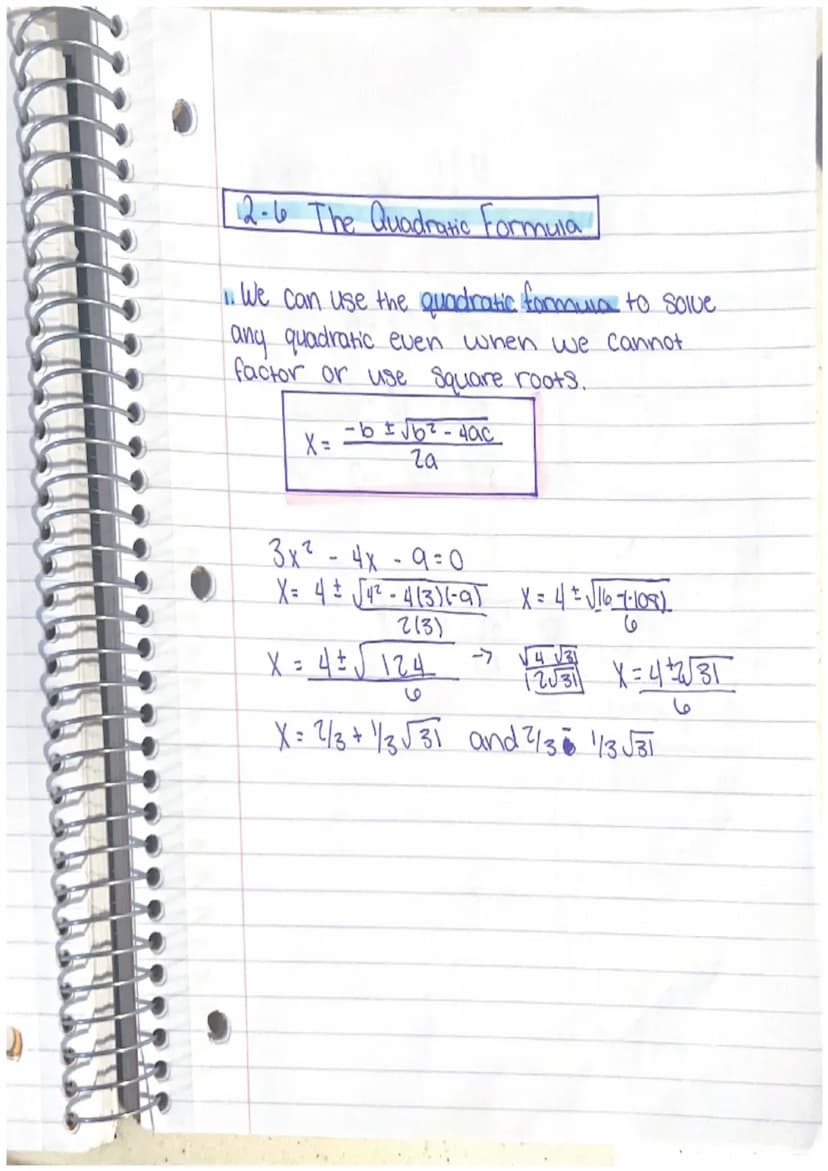 2-6 The Quadratic Formula
1. We can use the quadratic formula to solve
any quadratic even when we cannot
factor or use square roots.
x = -b ± √b² - 4ac
2a
3x² - 4x - 9 = 0
x = 4 ± √4² - 4(3)(-9) x = 4 ± √16 - (-108)
2(3) 6
x = 4 ± √124 → √4 √31 x = 4 ± 2√31
6 2√31 6
x = 2/3 + 1/3 √31 and 2/3 - 1/3 √31